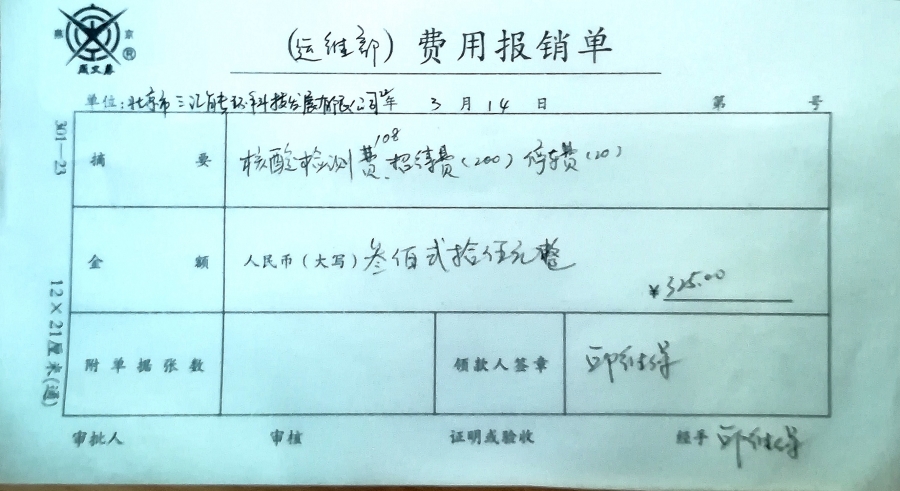 燕 京
成文厚
(运维部) 费用报销单
单位: 北京市三汇能环科技发展有限公司 年 3 月 14 日 第 号
301—23
摘 要 核酸检测费108、招待费(200) 停车费(20)
金 额 人民币(大写) 叁佰贰拾伍元整
¥325.00
12×21厘米(通)
附单据张数 领款人签章
审批人 审核 证明或验收 经手